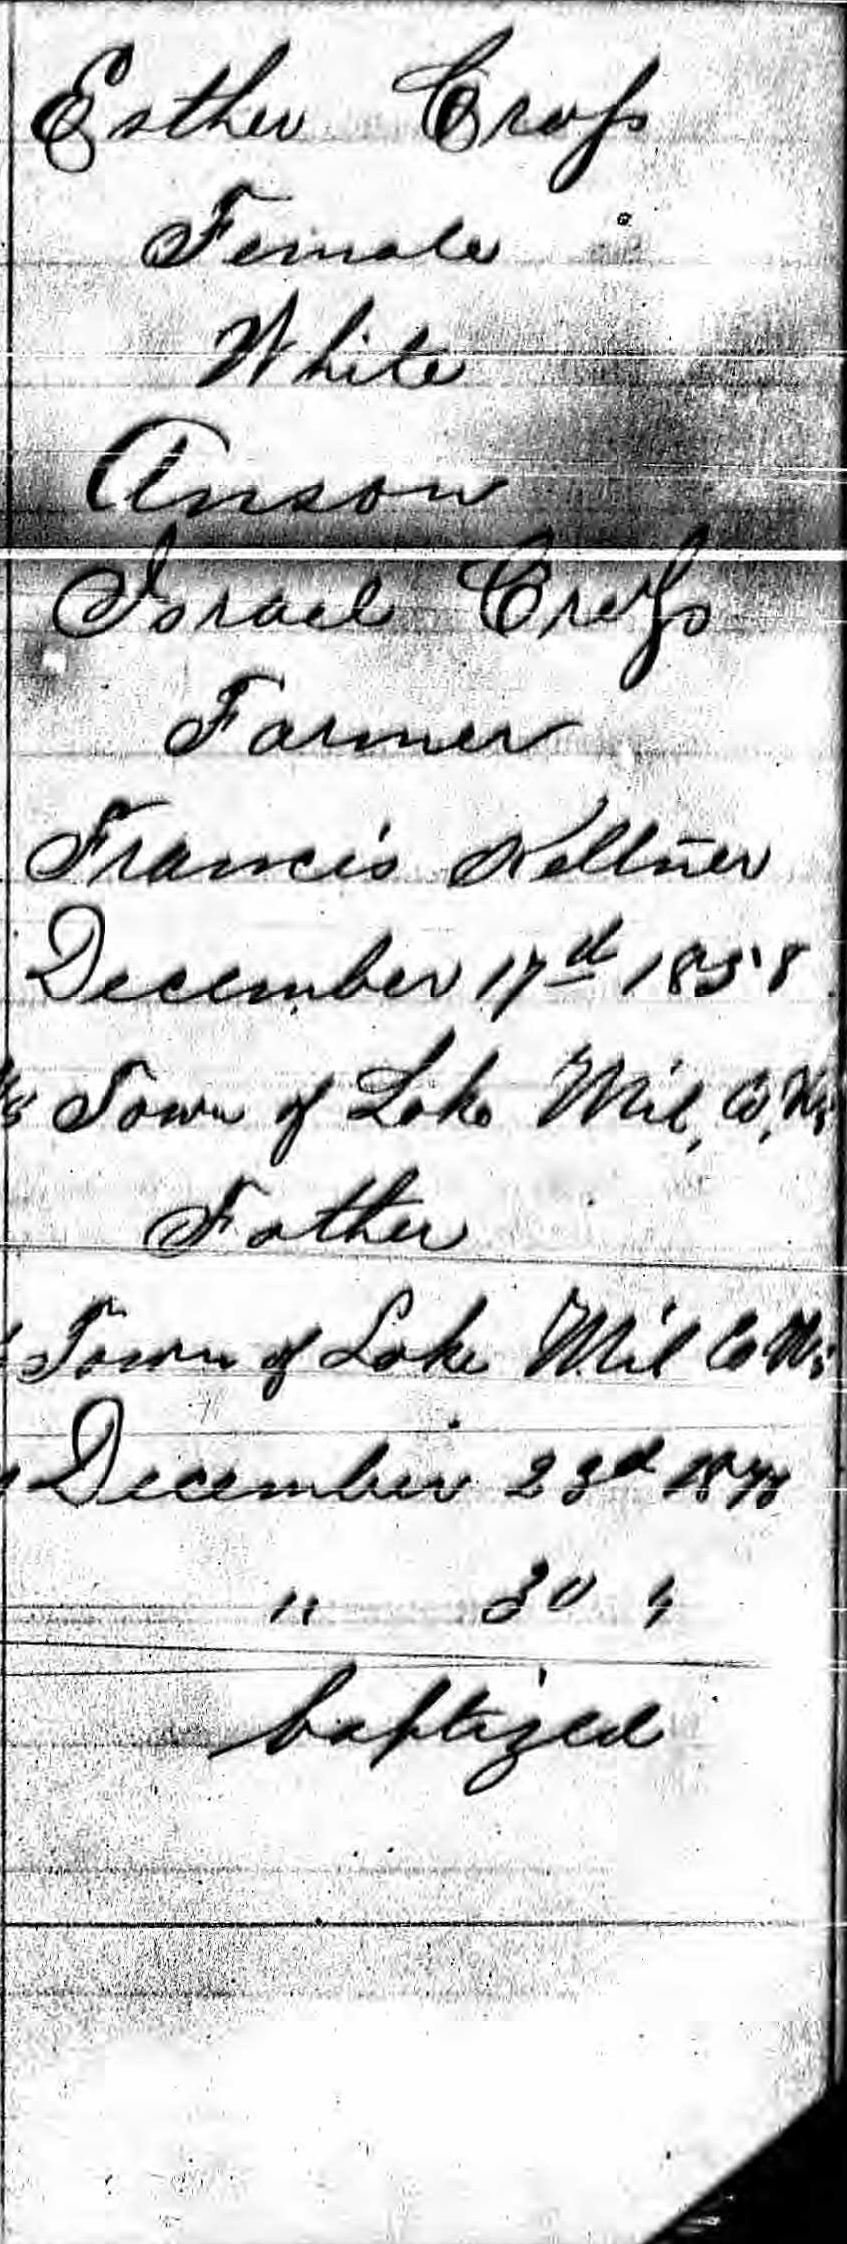 Esther Cross
Female
White
Anson
Israel Cross
Farmer
Francis Kellner
December 17d 1858
Town of Lake Mil, Co, Wis
Father
Town of Lake Mil Co Wis
December 23d 1878
" 30 "
baptized